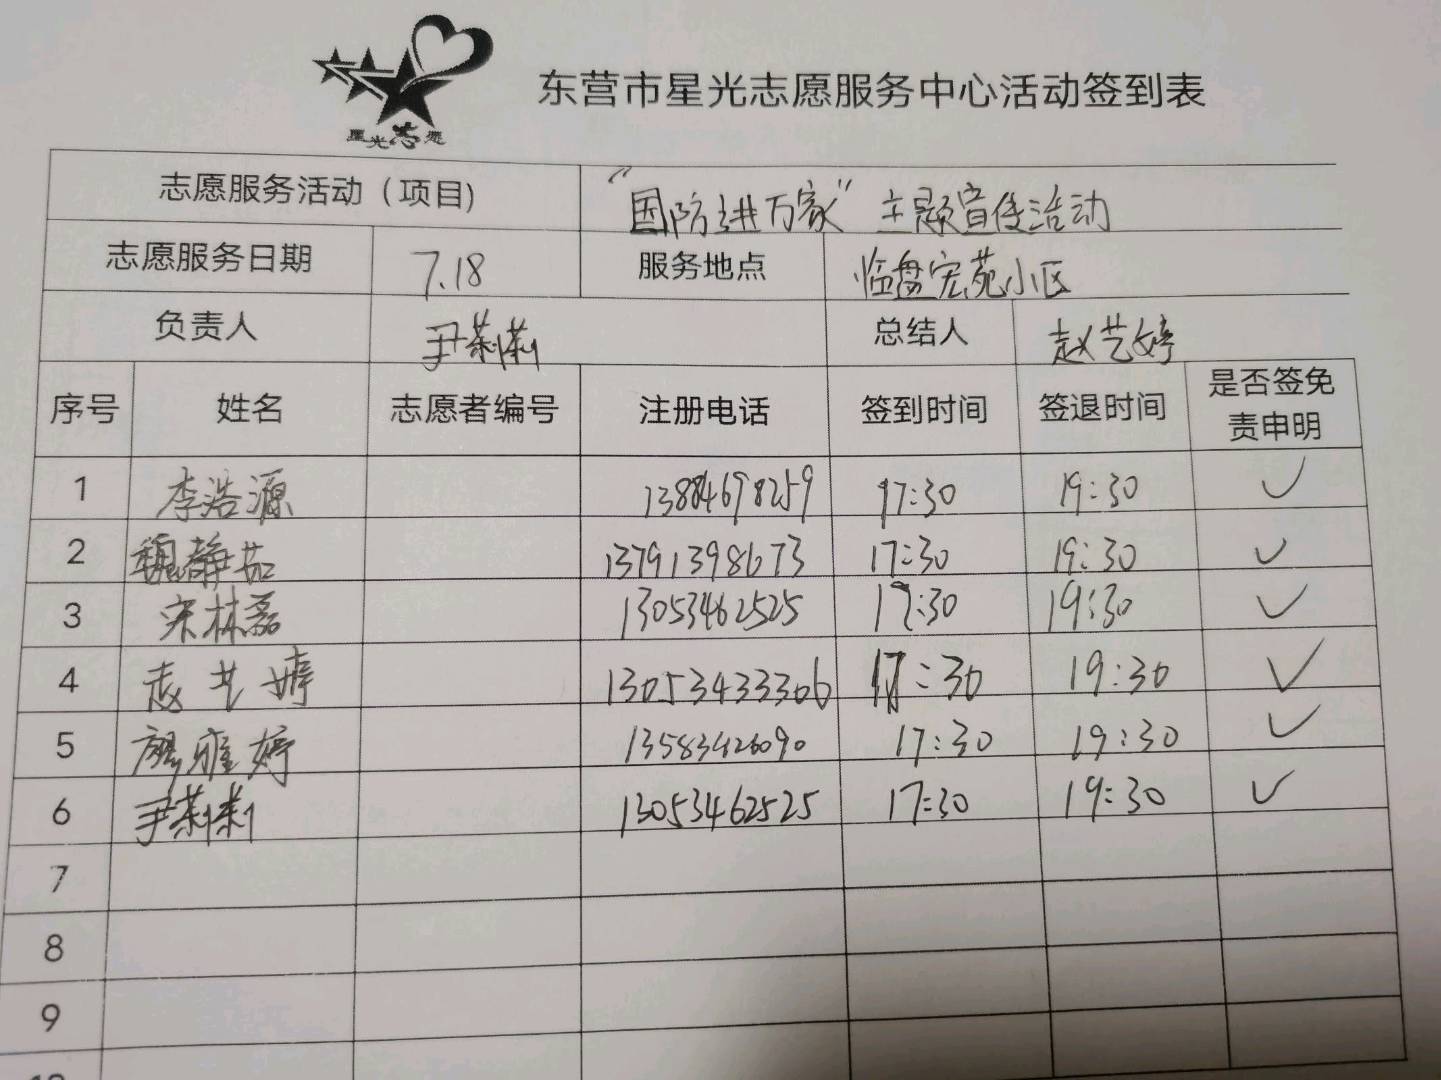 星光志愿
东营市星光志愿服务中心活动签到表
志愿服务活动（项目) "国防进万家"主题宣传活动
志愿服务日期 7.18 服务地点 临盘宏苑小区
负责人 尹莉莉 总结人 赵艺婷
序号 姓名 志愿者编号 注册电话 签到时间 签退时间 是否签免
责申明
1 李浩源 13884698259 17:30 19:30 ✓
2 魏静茹 13791398673 17:30 19:30 ✓
3 宋林磊 13053462525 17:30 19:30 ✓
4 赵艺婷 13053433306 17:30 19:30 ✓
5 廖雅婷 13583426090 17:30 19:30 ✓
6 尹莉莉 13053462525 17:30 19:30 ✓
7
8
9
10